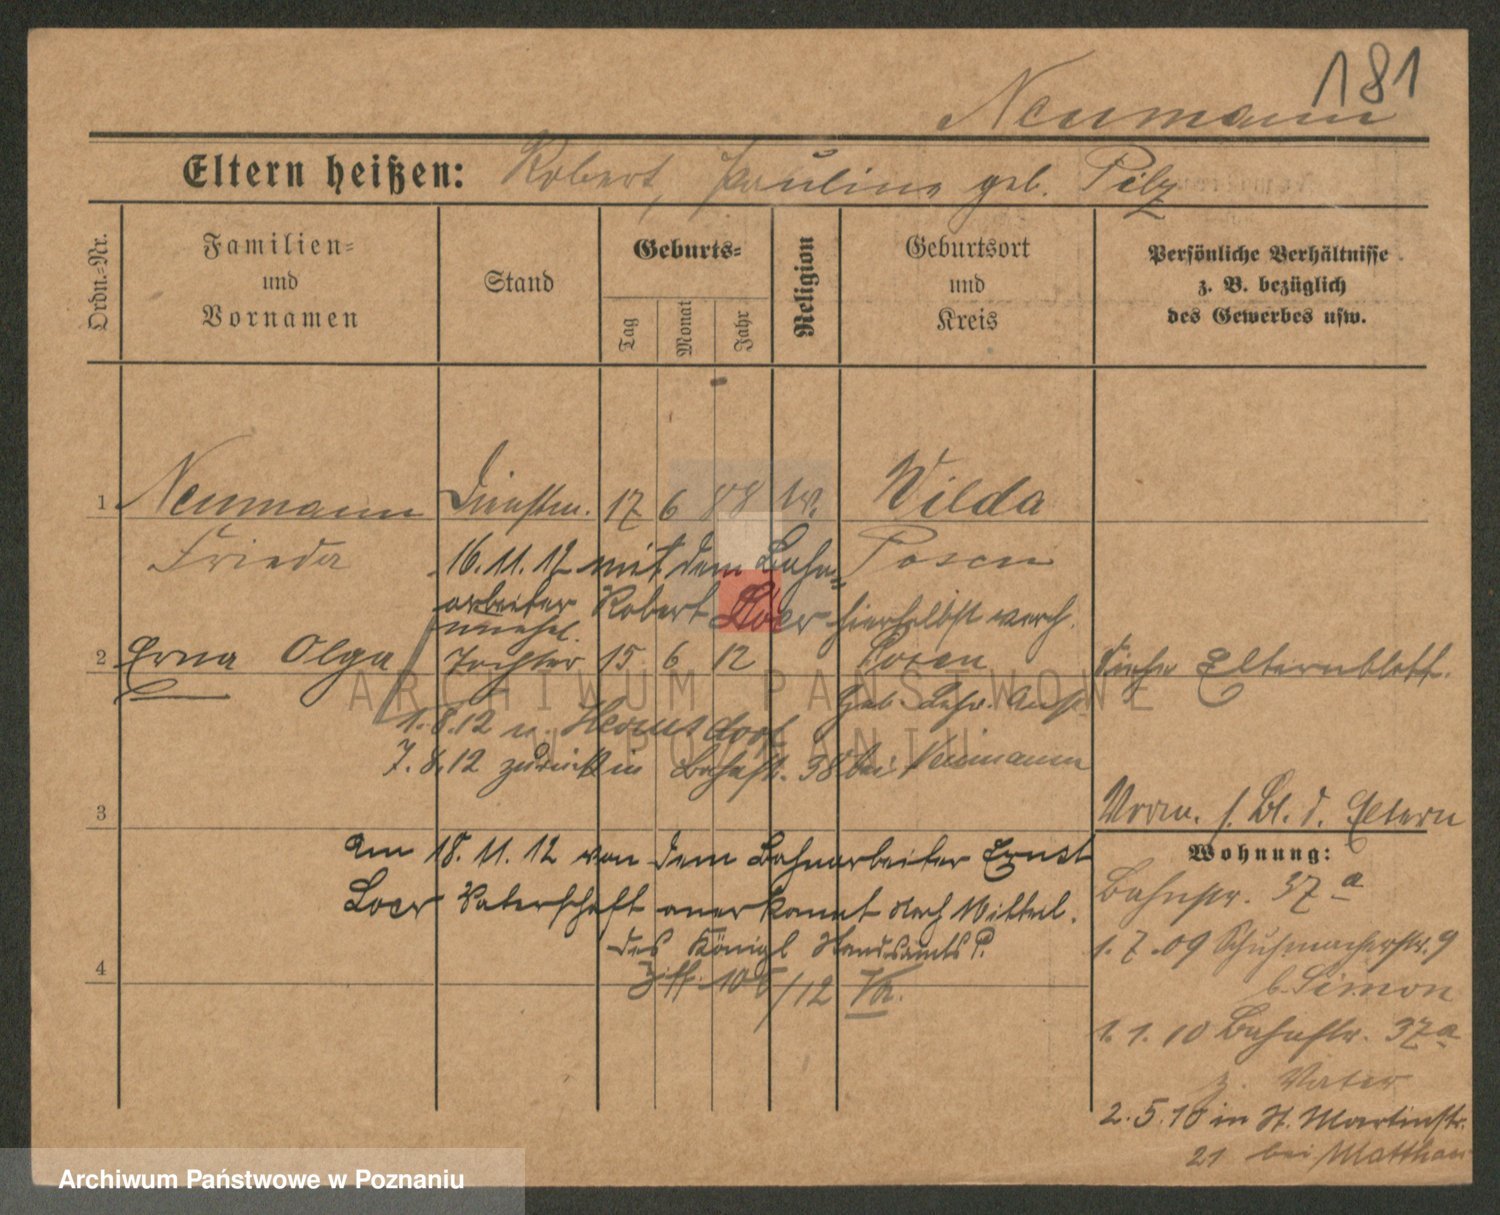 181
Neumann
Eltern heißen: Robert, Pauline geb. Pilz
Ordn.=Nr.
Familien=
und
Vornamen
Stand
Geburts=
Tag
Monat
Jahr
Religion
Geburtsort
und
Kreis
Persönliche Verhältnisse
z. B. bezüglich
des Gewerbes usw.
1 Neumann Dienstm. 17 6 88 Wilda
Frieda Posen
16.11.12 mit dem Bahn=
arbeiter Robert Loer hierselbst verh.
unehel.
2 Erna Olga Tochter 15 6 12 Posen siehe Elternblatt.
1.8.12 n. Hermsdorf
7.8.12 zurück in 38 bei Neumann
3
Vorm. s. Bl. d. Eltern
Am 18.11.12 von dem Bahnarbeiter Ernst
Loer Vaterschaft anerkannt nach Mitteil.
des Königl Standsamts P.
4
106/12
Wohnung:
Bahnstr. 37a
1.7.09 Schuhmacherstr. 9
b. Simon
1.1.10 Bahnstr. 37a
z. Vater
2.5.10 in St. Martinstr.
21 bei Matthau
ARCHIWUM PAŃSTWOWE
W POZNANIU
Archiwum Państwowe w Poznaniu